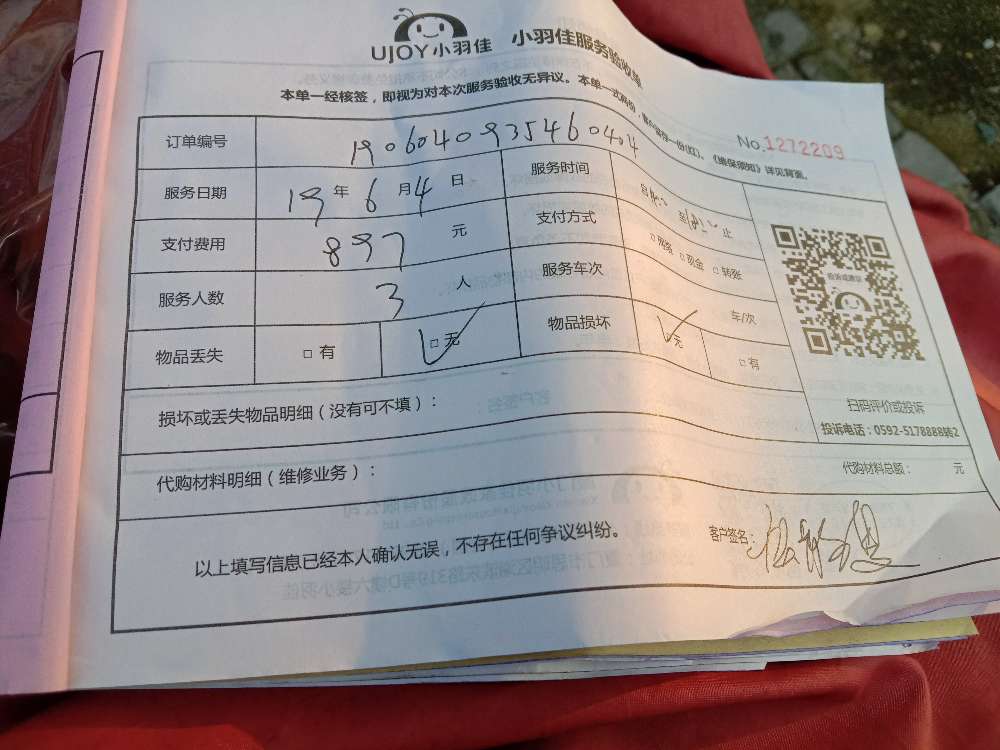 UJOY小羽佳 小羽佳服务验收单
本单一经核签，即视为对本次服务验收无异议。本单一式两份，客户留存一份(红)、《维保须知》详见背面。
No.1272209
订单编号 1906040935460404
服务日期 19 年 6 月 4 日 服务时间 至 止
支付费用 897 元 支付方式 □网络 □现金 □转账
服务人数 3 人 服务车次 车/次
物品丢失 □ 有 □ 无 物品损坏 无 □ 有
投诉或建议
损坏或丢失物品明细（没有可不填）：
扫码评价或投诉
投诉电话：0592-5178888转2
代购材料明细（维修业务）： 代购材料总额： 元
以上填写信息已经本人确认无误，不存在任何争议纠纷。 客户签名：